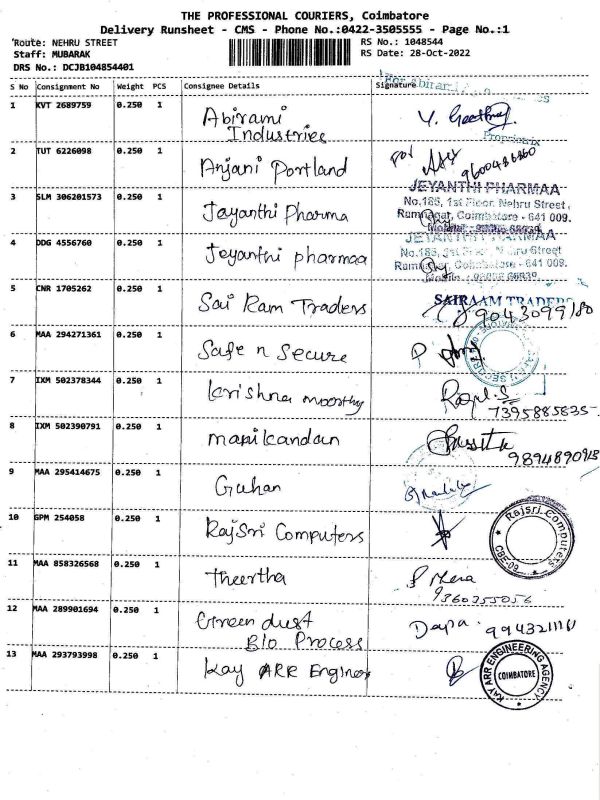 THE PROFESSIONAL COURIERS, Coimbatore
Delivery Runsheet - CMS - Phone No.:0422-3505555 - Page No.:1
Route: NEHRU STREET RS No.: 1048544
Staff: MUBARAK RS Date: 28-Oct-2022
DRS No.: DCJB104854401
S No Consignment No Weight PCS Consignee Details Signature
1 KVT 2689759 0.250 1 Abirami Industries
Proprietrix
2 TUT 6226098 0.250 1 Anjani Portland for 9600486860
3 SLM 306201573 0.250 1 Jayanthi Pharma
JEYANTHI PHARMAA
No.185, 1st Floor, Nehru Street,
Ramnagar, Coimbatore - 641 009.
4 DDG 4556760 0.250 1 Jeyanthi pharmaa
JEYANTHI PHARMAA
No.185, 1st Floor, Nehru Street
Ramnagar, Coimbatore - 641 009.
5 CNR 1705262 0.250 1 Sai Ram Traders
SAIRAAM TRADERS
9043099180
6 MAA 294271361 0.250 1 Safe n Secure
7 IXM 502378344 0.250 1 krishna moorthy
7395885635
8 IXM 502390791 0.250 1 manikandan
9894890918
9 MAA 295414675 0.250 1 Guhan
10 GPM 254058 0.250 1 RajSri Computers
Rajsri Computers
CBE-09
11 MAA 858326568 0.250 1 Theertha
9360355056
12 MAA 289901694 0.250 1 Green dust Bio Process
13 MAA 293793998 0.250 1 Kay ARR Engineer
KAY ARR ENGINEERING AGENCY
COIMBATORE